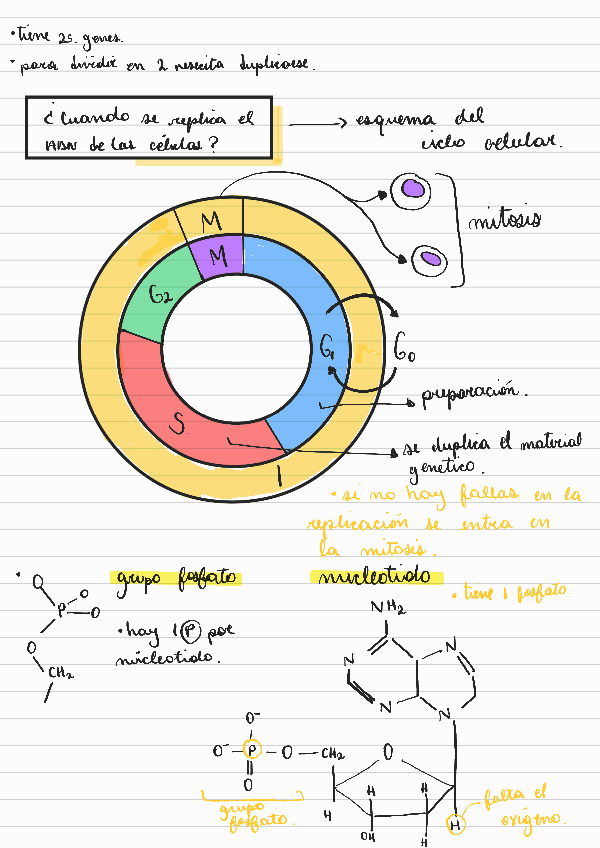 • tiene 2s. genes.
• para dividir en 2 necesita duplicarse.
¿Cuando se replica el
ADN de las células?
esquema del
ciclo celular.
M
M
mitosis
G2
G1
G0
preparación.
S
se duplica el material
genetico.
I
• si no hay fallas en la
replicación se entra en
la mitosis.
grupo fosfato
nucleotido
• tiene 1 fosfato
O
O
P
O
O
CH2
• hay 1 P por
núcleotido.
NH2
N
N
N
N
O-
O- P O CH2
O
O
grupo
fosfato.
H
H
H
OH
H
H
falta el
oxígeno.